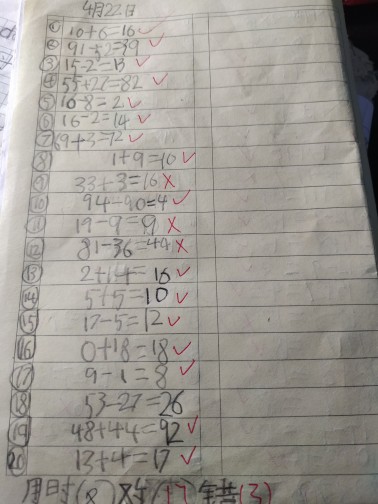 4月22日
① 10+6=16 ✓
② 91-52=39 ✓
③ 15-2=13 ✓
④ 55+27=82 ✓
⑤ 10-8=2 ✓
⑥ 16-2=14 ✓
⑦ 69+3=72 ✓
⑧ 1+9=10 ✓
⑨ 33+3=16 ×
⑩ 94-90=4 ✓
⑪ 19-9=9 ×
⑫ 81-36=44 ×
⑬ 2+14=16 ✓
⑭ 5+5=10 ✓
⑮ 17-5=12 ✓
⑯ 0+18=18 ✓
⑰ 9-1=8 ✓
⑱ 53-27=26
⑲ 48+44=92 ✓
⑳ 13+4=17 ✓
用时(8)对(17)错(3)